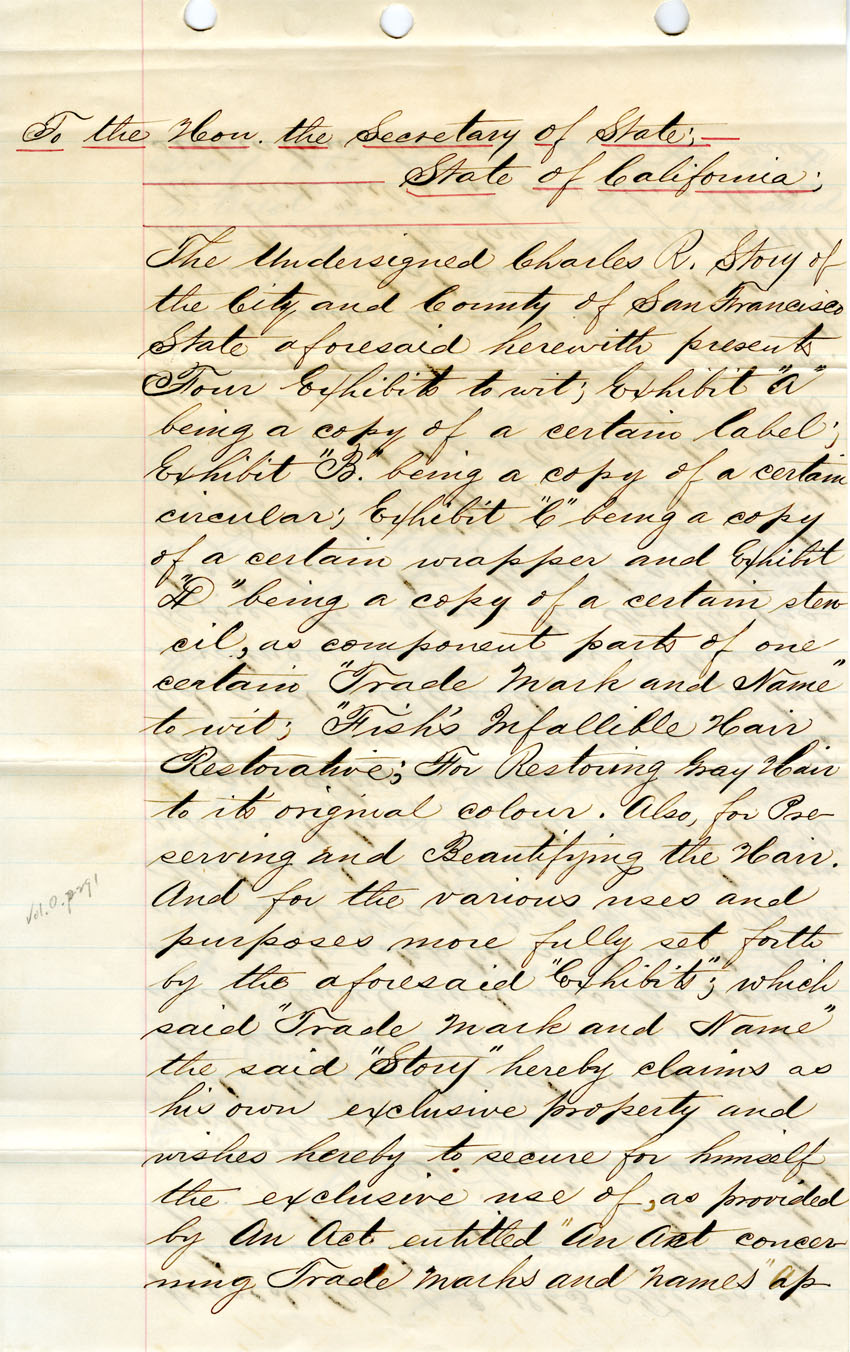 To the Hon. the Secretary of State;—
State of California;
The Undersigned Charles R. Story of
the City and County of San Francisco
State aforesaid herewith presents
Four Exhibits to wit; Exhibit "A"
being a copy of a certain label;
Exhibit "B." being a copy of a certain
circular; Exhibit "C" being a copy
of a certain wrapper and Exhibit
"D" being a copy of a certain sten
cil, as component parts of one
certain "Trade Mark and Name"
to wit; "Fish's Infallible Hair
Restorative; For Restoring Gray Hair
to its original colour. Also, for Pre-
serving and Beautifying the Hair.
And for the various uses and
purposes more fully set forth
by the aforesaid "Exhibits"; which
said "Trade Mark and Name"
the said "Story" hereby claims as
his own exclusive property and
wishes hereby to secure for himself
the exclusive use of, as provided
by An Act entitled "An Act concer
ning Trade Marks and Names" Ap
Vol. O. p 291